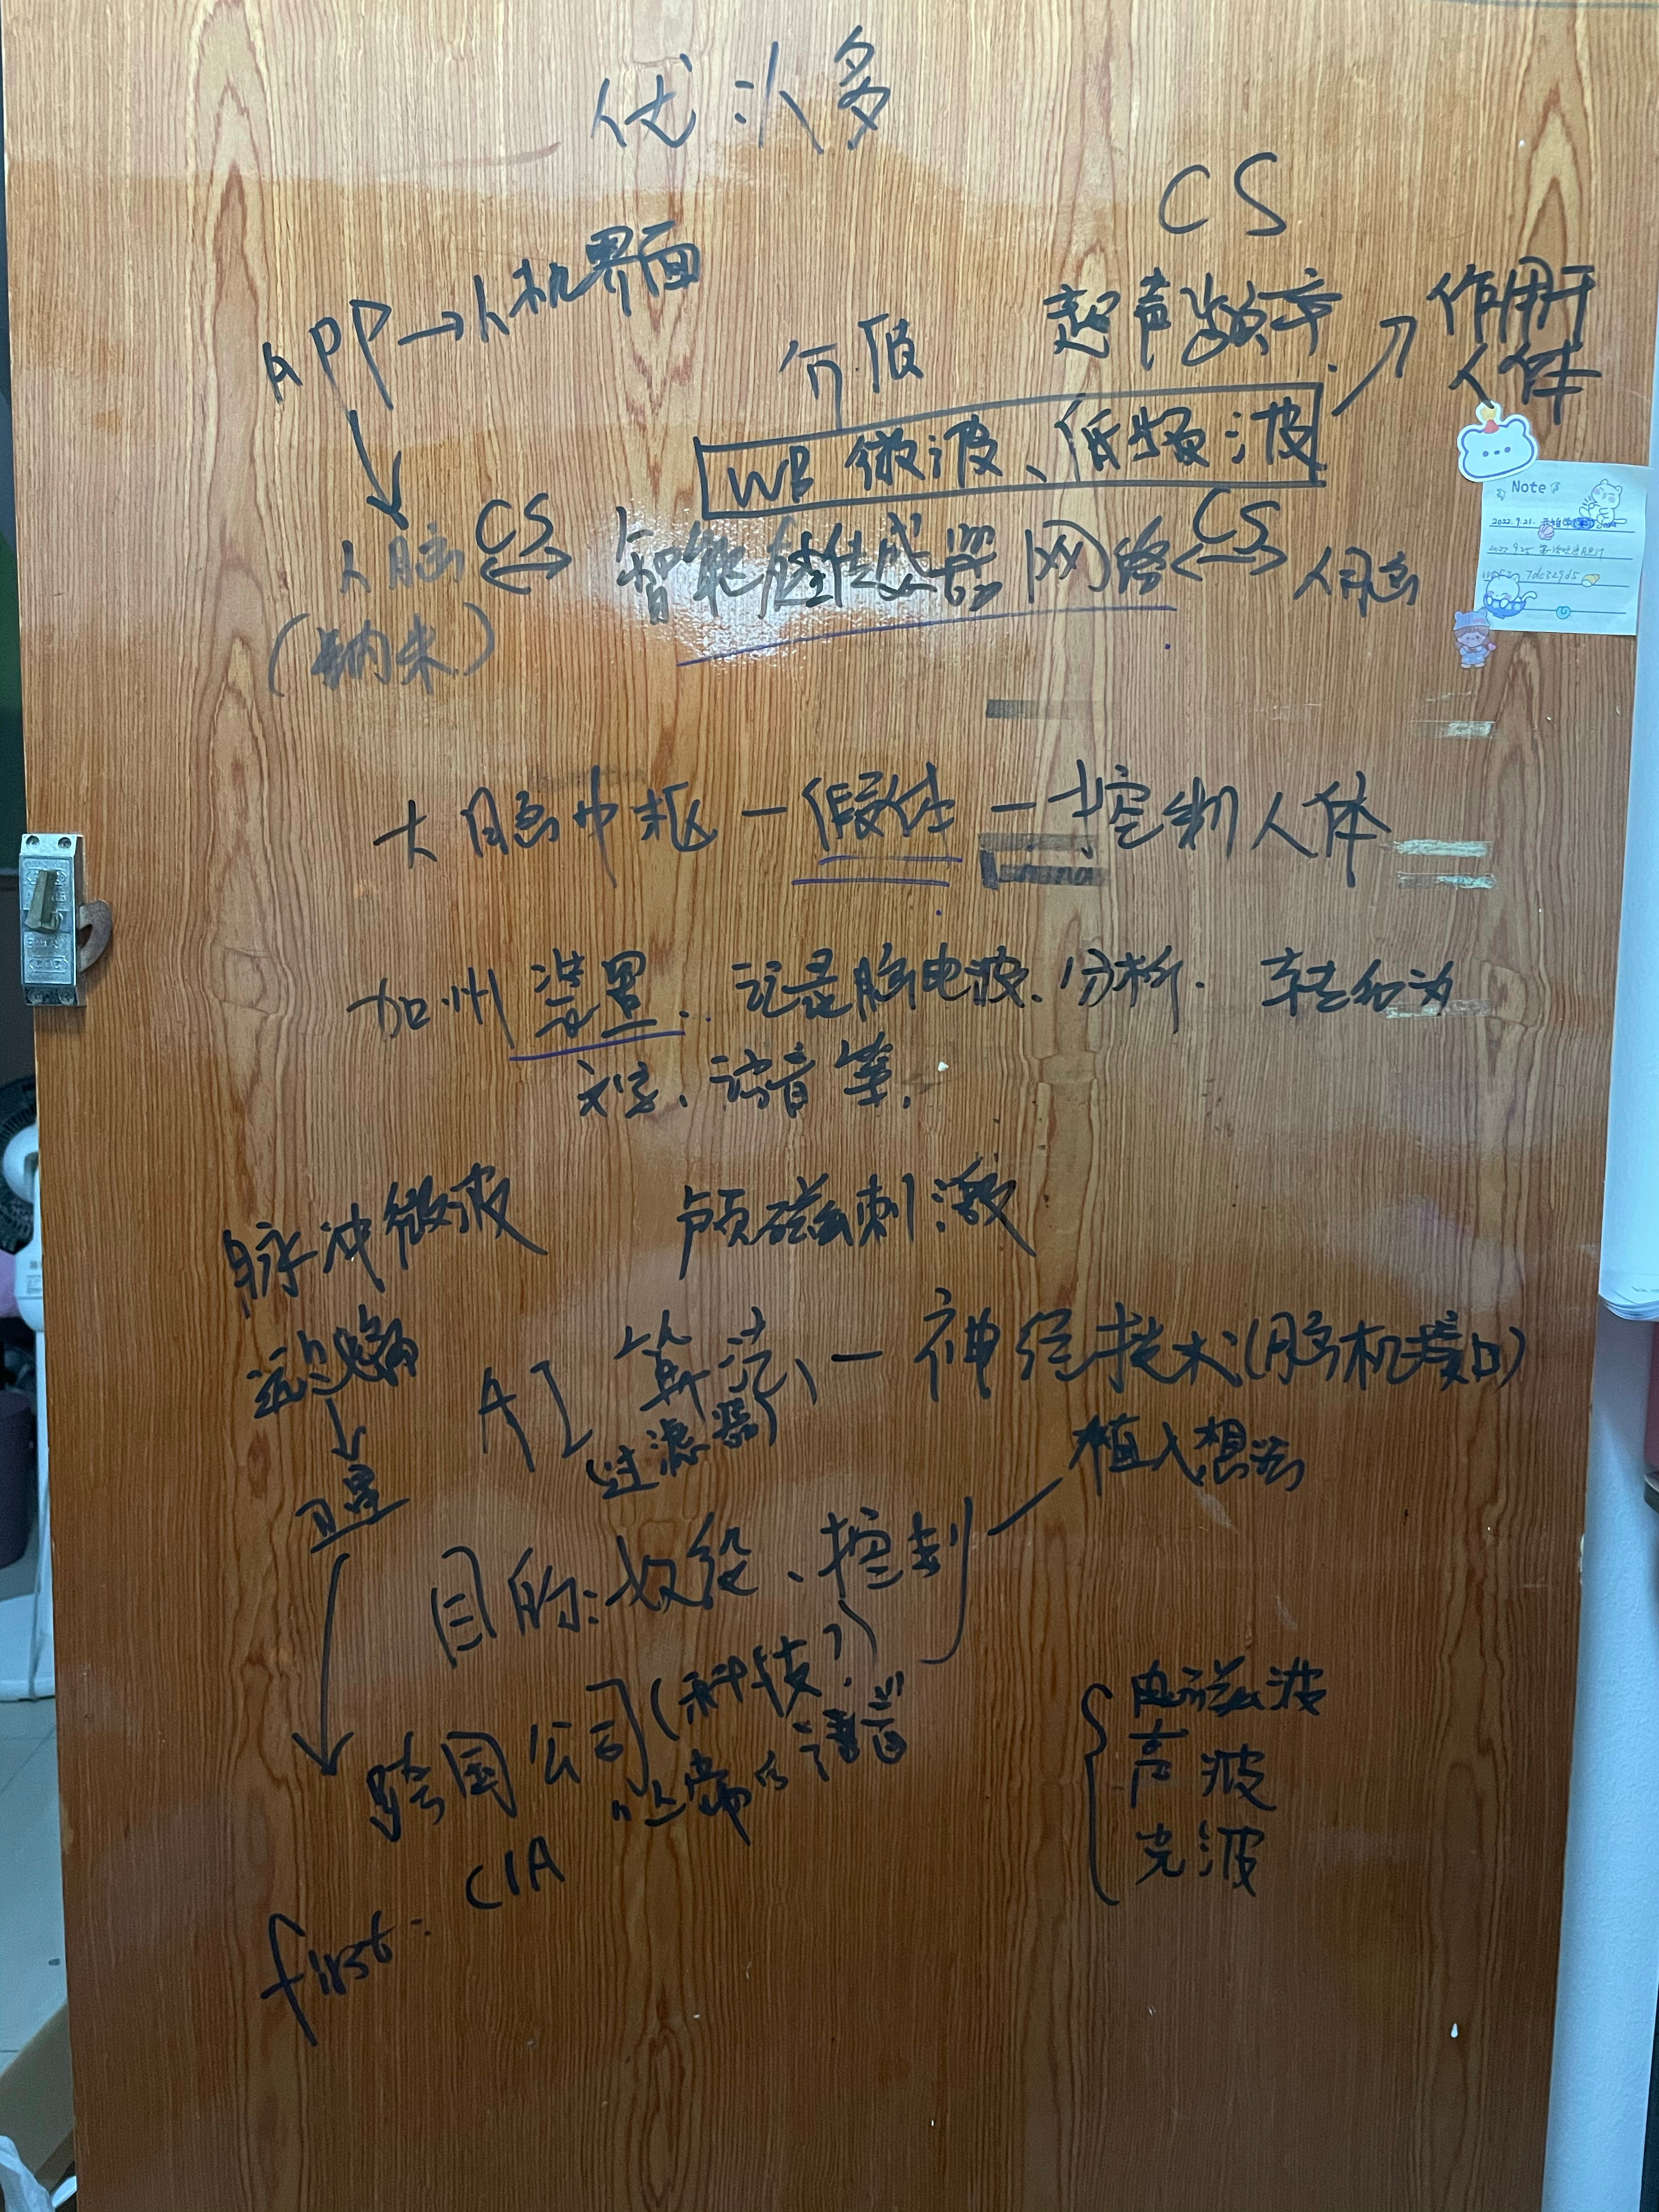 CS
APP → 人机界面
超声频率
作用于
人体
WB 微波、低频波
人脑 CS 智能硅传感器网络 CS 人脑
(纳米)
大脑中枢 — 假体 — 控制人体
加州装置. 记录脑电波、分析. 转红为
文字、语音等.
脉冲微波 颅磁刺激
远端
AI 算法 — 神经技术(脑机接口)
(过滤器)
植入想法
卫星
目的: 奴役、控制
跨国公司(科技?)
CIA
first:
电磁波
声波
光波
Note
2022.9.21.
2022 9.25
7dc329d5